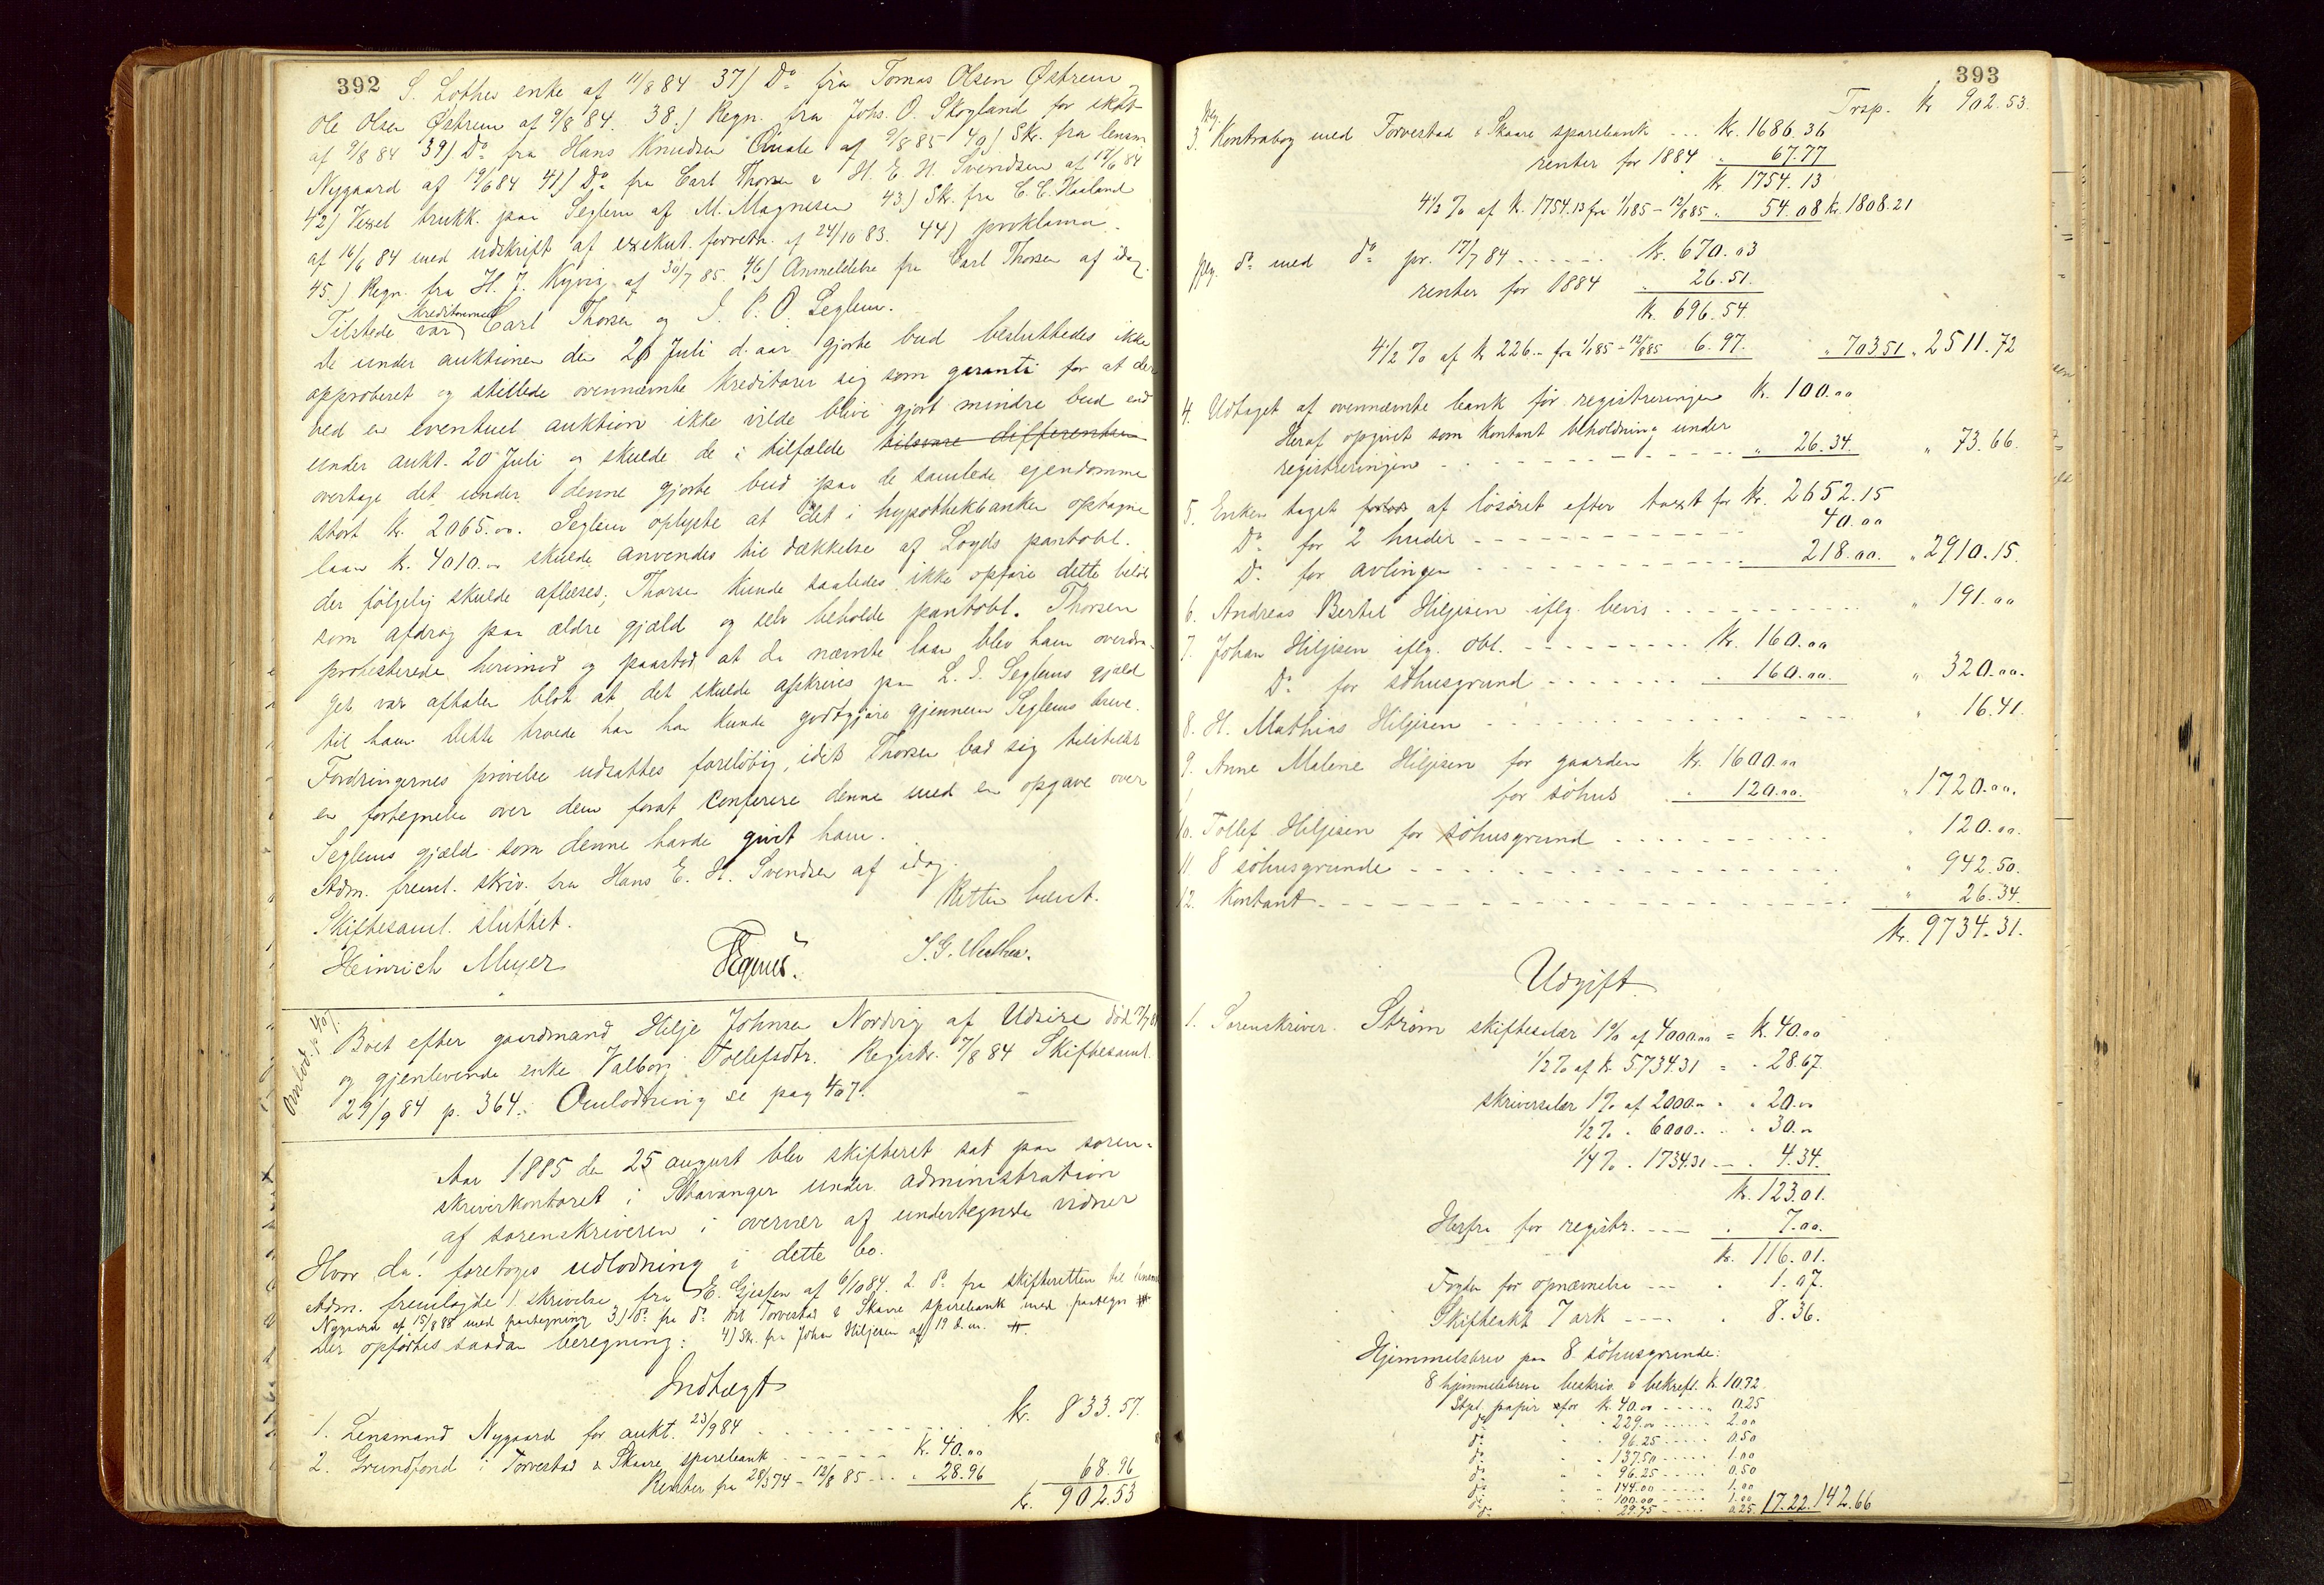 392
S. Lothes enke af 11/8 84 37) Do fra Tomas Olsen Østrem
Ole Olsen Østrem af 9/8 84. 38.) Regn. fra Johs. O. Skogland for skat
af 9/8 84 39) Do fra Hans Knudsen Qvale af 9/8 85 40) Sk. fra lensm
Nygaard af 19/6 84 41) Do fra Carl Thorsen & H. E. H. Svendsen af 17/6 84
42) Vexel trukk. paa Seglem af M. Magnesen 43.) Sk. fra C. C. Haaland
af 16/6 84 med udskrift af exekut. forretn. af 24/10 83. 44) proklama.
45.) Regn. fra H. J. Kyvig af 30/7 85. 46) Anmeldelse fra Carl Thorsen af idag.
Tilstede var kreditorerne Carl Thorsen og J. P. O. Seglem.
De under auktionen den 20 Juli d. aar gjorte bud besluttedes ikke
approberet og stillede ovennævnte kreditorer sig som garanti for at der
ved en eventuel auktion ikke vilde blive gjort mindre bud end
under aukt. 20 Juli og skulde de i tilfælde tilsvare differenten
overtage det under denne gjorte bud paa de samlede ejendomme
stort kr. 2065.00. Seglem oplyste at det i hypothekbanken optagne
laan kr. 4010.00 skulde anvendes til dækkelse af Loyds pantobl.
der følgelig skulde aflæses; Thorsen kunde saaledes ikke opføre dette beløb
som afdrag paa ældre gjæld og selv beholde pantobl. Thorsen
protesterede herimod og paastod at da nævnte laan blev ham overdra-
get var aftalen blot at det skulde afskrives paa L. J. Seglems gjæld
til ham. Dette troede han han kunde godtgjøre gjennem Seglems breve.
Fordringernes prøvelse udsattes foreløbig, idet Thorsen bad sig tilstillet
en fortegnelse over dem forat conferere denne med en opgave over
Seglems gjæld som denne havde givet ham.
Adm. freml. skriv. fra Hans E. H. Svendsen af idag.
Skiftesaml. sluttet. Retten hævet.
Heinrich Meyer
Omlod. p. 407.
Boet efter gaardmand Hilje Johnsen Nordvig af Udsire død
og gjenlevende enke Valborg Tollefsdtr. Registr. 7/8 84 Skiftesaml.
29/9 84 p. 364. Omlodning se pag 407.
Aar 1885 den 25 august blev skifteret sat paa soren-
skriverkontoret i Stavanger under administration
af sorenskriveren i overvær af undertegnede vidner
Hvor da! foretoges udlodning i dette bo.
Adm. fremlagde 1. skrivelse fra E. Gjessen af 6/10 84. 2. do fra skifteretten til lensmd
Nygaard af 15/8 85 med paategning 3) do fra do til Torvestad & Skaare sparebank med paategn
Der opførtes saadan beregning: 4) Sk. fra Johan Hiljesen af 19 d.m.
Indtægt
1. Lensmand Nygaard for aukt. 23/9 84 kr. 833.57.
2. Grundfond i Torvestad & Skaare sparebank kr. 40.00
Renter fra 28/3 74 - 12/8 85 " 28.96 68.96
kr. 902.53
393
Trsp. kr 902.53.
3. Kontrabog med Torvestad & Skaare sparebank ... kr. 1686.36
renter for 1884 " 67.77
kr. 1754.13
4 1/2 % af kr. 1754.13 fra 1/1 85 - 12/8 85 " 54.08 kr. 1808.21
do med do pr. 17/7 84 ...... kr. 670.03
renter for 1884 " 26.51.
kr. 696.54.
4 1/2 % af kr 226.- fra 1/1 85 - 12/8 85 6.97. " 703.51 " 2511.72
4. Udtaget af ovennævnte bank før registreringen kr. 100.00
Heraf opgivet som kontant beholdning under
registreringen " 26.34. " 73.66.
5. Enken taget af løsøret efter taxt for kr. 2652.15
Do for 2 huder 40.00
Do for avlingen 218.00. " 2910.15.
6. Andreas Bertel Hiljesen iflg. bevis " 191.00
7. Johan Hiljesen iflg. obl. kr. 160.00
Do for søhusgrund " 160.00. " 320.00.
8. H. Mathias Hiljesen " 16.41.
9. Anne Malene Hiljesen for gaarden kr. 1600.00
for søhus " 120.00. " 1720.00.
10. Tollef Hiljesen for søhusgrund " 120.00.
11 8 søhusgrunde " 942.50.
12. Kontant " 26.34.
kr. 9734.31.
Udgift
1. Sorenskriver Strøm skiftesalær 1% af 4000.00 = kr. 40.00
1/2 % af kr. 5734.31 = " 28.67.
skriversalær 1% af 2000.00 " " 20.00
1/2 % " 6000.. " 30.00
1/4 % " 1734.31 " 4.34.
kr. 123.01.
Herfra for registr. " 7.00.
kr. 116.01.
Fogden for opnævnelse " 1.07.
Skifteakt 7 ark " 8.36.
Hjemmelsbrev paa 8 søhusgrunde:
8 hjemmelsbreve beskriv. & bekræft. kr. 10.72.
Stpl. papir for kr. 40.00 " 0.25
do " " 229.00 2.00
do " " 96.25 0.50
do " " 137.50 1.00
do " " 96.25 0.50
do " " 144.00 1.00
do " " 100.00 1.00
do " " 29.75 0.25 17.22. 142.66